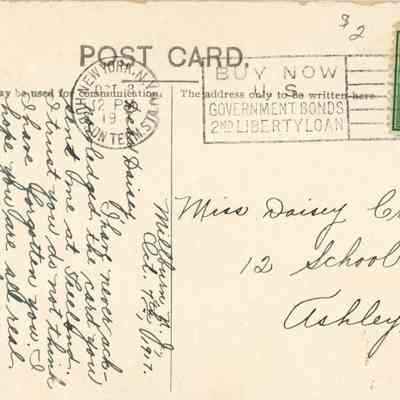 $2
POST CARD.
NEW YORK, N.Y.
OCT 8
12 PM
19
HUDSON TERM. STA.
BUY NOW
U.S.
GOVERNMENT BONDS
2ND LIBERTY LOAN
may be used for communication.
The address only to be written here.
Millburn N. J.
Oct. 7th, 1917.
Dear Daisey
I have never ack-
nowledged the card you
sent me at Freeland.
I trust you do not think
I have forgotten you. I
hope you are all real
Miss Daisey
12 School
Ashley